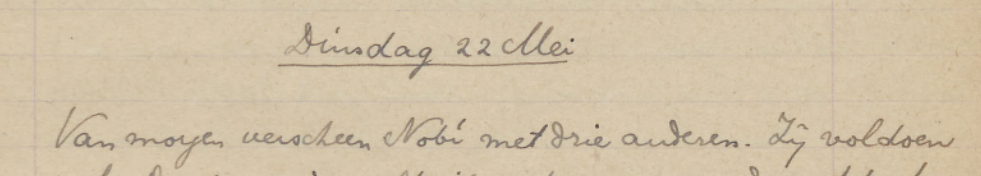 Dinsdag 22 Mei
Van morgen verscheen Nobi met drie anderen. Zij voldoen